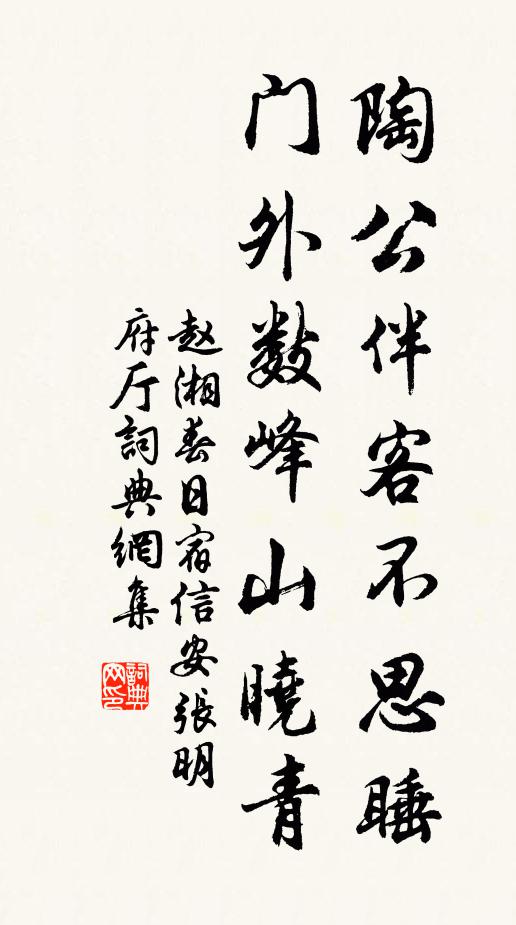 陶公伴客不思睡
门外数峰山曉青
赵湘春日宿信安張明
府厅詞典網集
詞典网印